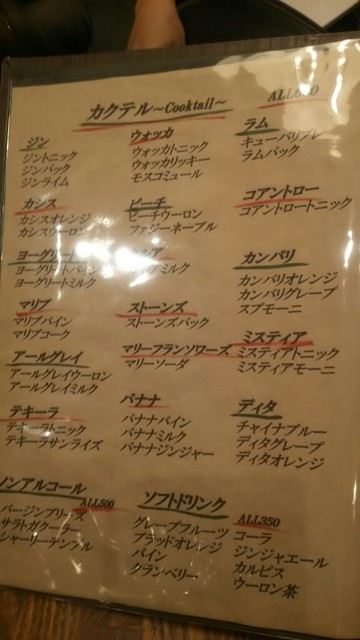 カクテル～Cooktail～
ジン
ジントニック
ジンバック
ジンライム
ウォッカ
ウォッカトニック
ウォッカリッキー
モスコミュール
ラム
キューバリブレ
ラムバック
カシス
カシスオレンジ
カシスウーロン
ピーチ
ピーチウーロン
ファジーネーブル
コアントロー
コアントロートニック
ヨーグリート
ヨーグリートパイン
ヨーグリートミルク
ミルク
カンパリ
カンパリオレンジ
カンパリグレープ
スプモーニ
マリブ
マリブパイン
マリブコーク
ストーンズ
ストーンズバック
ミスティア
ミスティアトニック
ミスティアモーニ
アールグレイ
アールグレイウーロン
アールグレイミルク
マリーフランソワーズ
マリーソーダ
テキーラ
テキーラトニック
テキーラサンライズ
バナナ
バナナパイン
バナナミルク
バナナジンジャー
ディタ
チャイナブルー
ディタグレープ
ディタオレンジ
ノンアルコール
ALL500
バージンブリーズ
サラトガクーラー
シャーリーテンプル
ソフトドリンク
ALL350
グレープフルーツ
ブラッドオレンジ
パイン
クランベリー
コーラ
ジンジャエール
カルピス
ウーロン茶